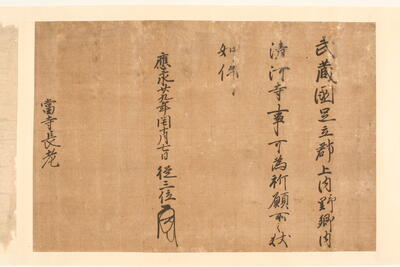 武蔵國足立郡上内野郷内
清河寺事可為祈願所之状
如件
應永廿九年閏十月日 従三位
當寺長老